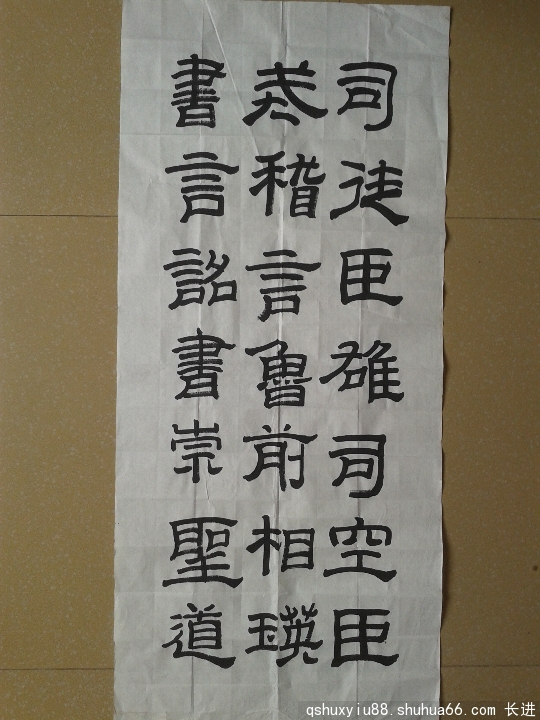 司徒臣雄司空臣
戒稽言魯前相瑛
書言詔書崇聖道
qshuxyiu88.shuhua66.com 长进